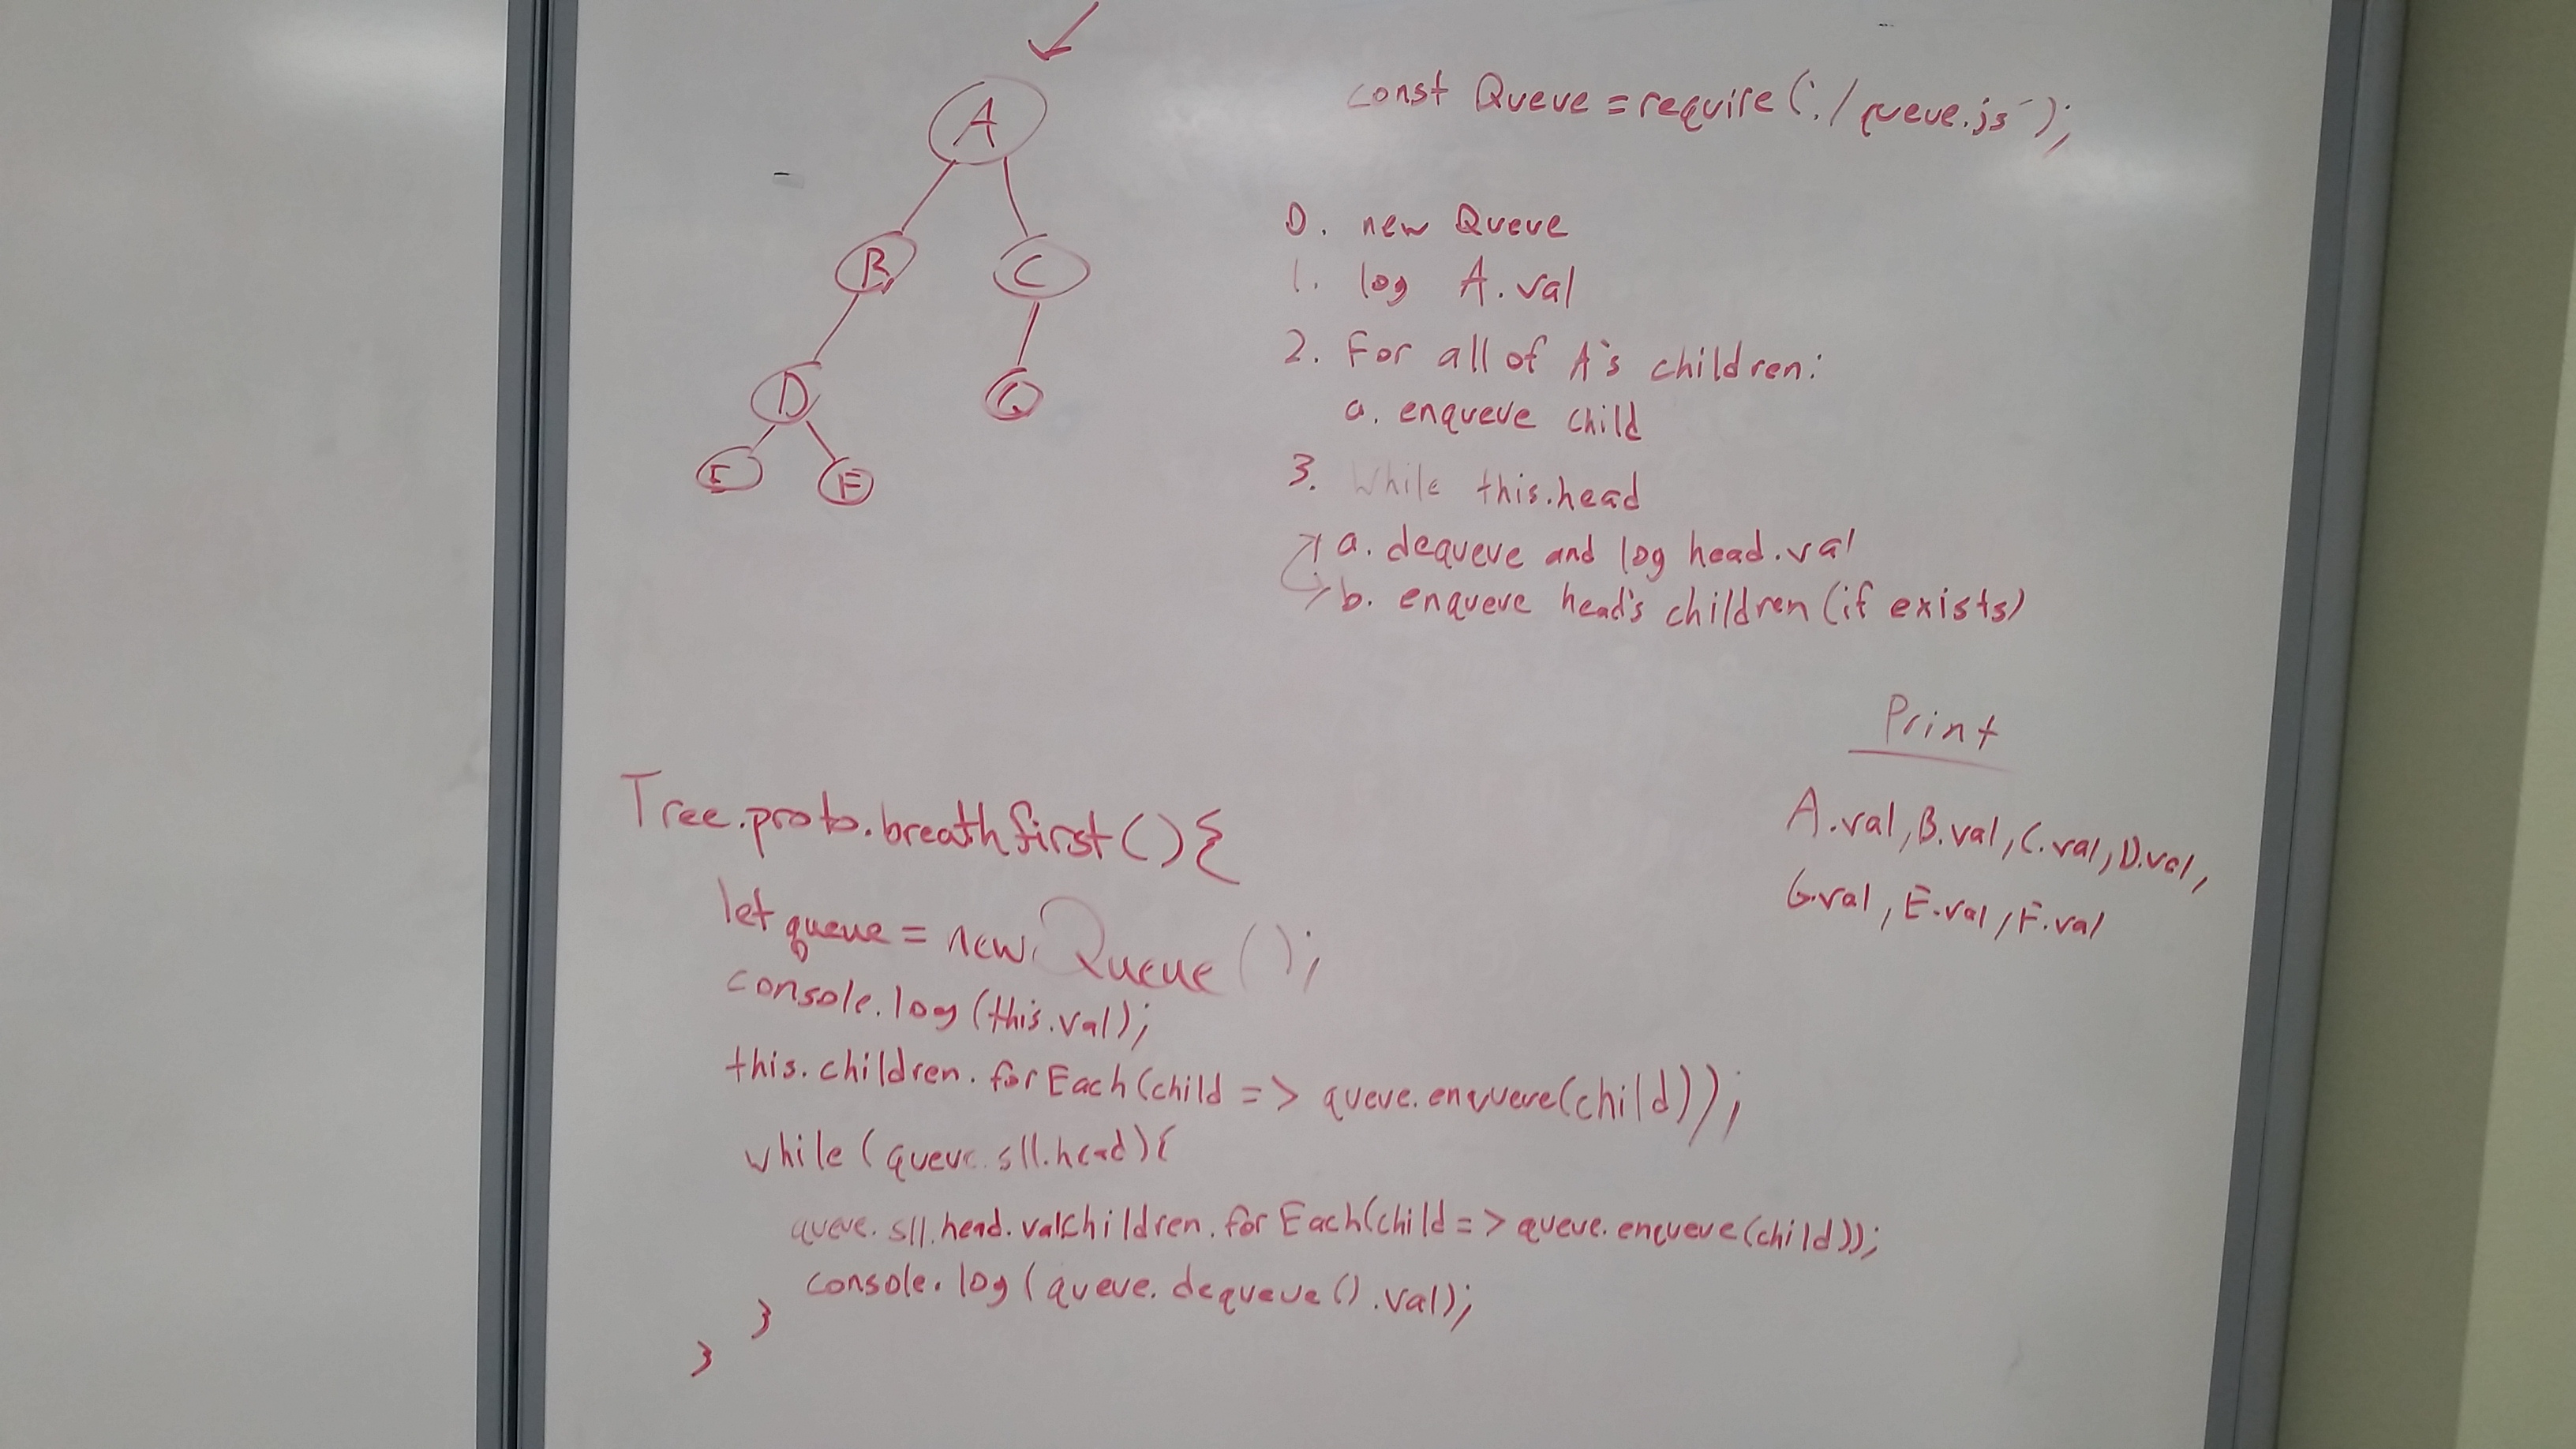 A
B
C
D
G
E
F
const Queue = require('./queue.js');
0. new Queue
1. log A.val
2. For all of A's children:
a. enqueue child
3. While this.head
a. dequeue and log head.val
b. enqueue head's children (if exists)
Print
A.val, B.val, C.val, D.val,
G.val, E.val, F.val
Tree.proto.breathfirst() {
let queue = new Queue();
console.log(this.val);
this.children.forEach(child => queue.enqueue(child));
while (queue.sll.head) {
queue.sll.head.val.children.forEach(child => queue.enqueue(child));
console.log(queue.dequeue().val);
}
}